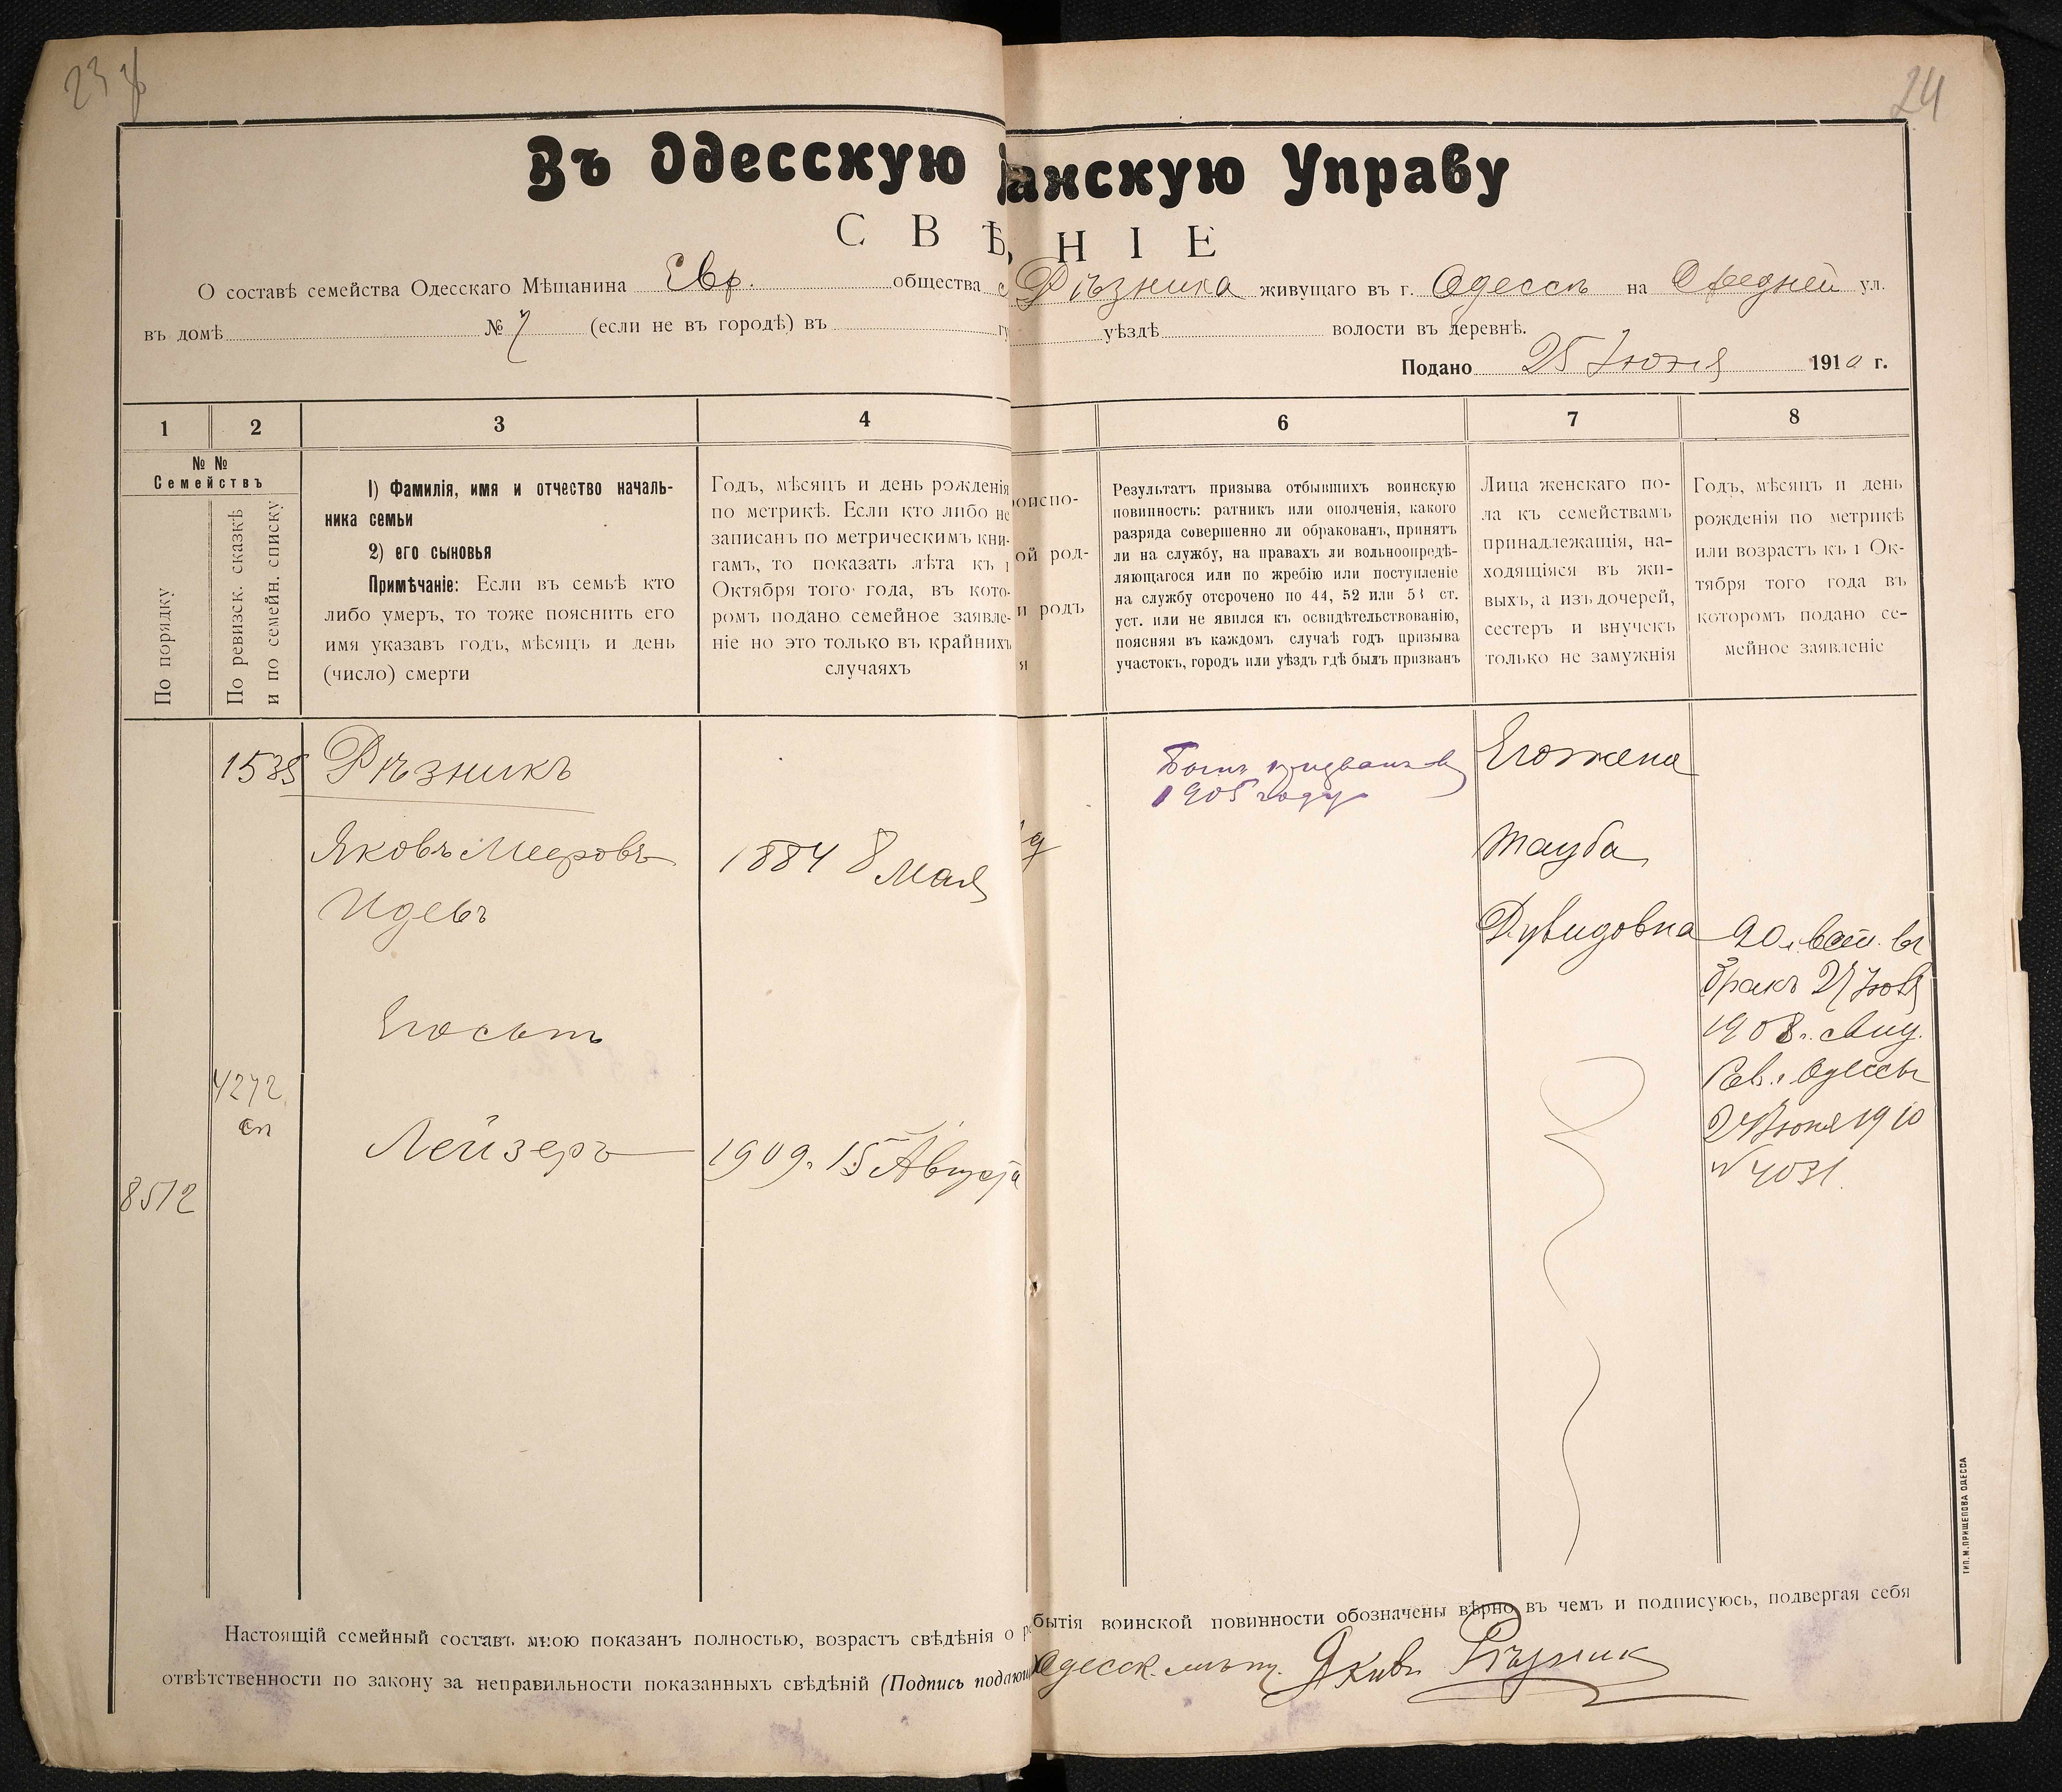 24
Въ Одесскую
анскую Управу
С В Ѣ
Н І Е
О составѣ семейства Одесскаго Мѣщанина Евр. общества
Рѣзника живущаго въ г. Одессѣ на Средней ул.
въ домѣ № 7 (если не въ городѣ) въ
уѣздѣ волости въ деревнѣ.
Подано 25 Іюня 1910 г.
1 2 3 4
6 7 8
№ №
Семействъ
По порядку
По ревизск. сказкѣ
и по семейн. списку
1) Фамилія, имя и отчество началь-
ника семьи
2) его сыновья
Примѣчаніе: Если въ семьѣ кто
либо умеръ, то тоже пояснить его
имя указавъ годъ, мѣсяцъ и день
(число) смерти
Годъ, мѣсяцъ и день рожденія
по метрикѣ. Если кто либо не
записанъ по метрическимъ кни-
гамъ, то показать лѣта къ 1
Октября того года, въ кото-
ромъ подано семейное заявле-
ніе но это только въ крайнихъ
случаяхъ
ой род-
и родъ
я
Результатъ призыва отбывшихъ воинскую
повинность: ратникъ или ополченія, какого
разряда совершенно ли обракованъ, принятъ
ли на службу, на правахъ ли вольноопредѣ-
ляющагося или по жребію или поступленіе
на службу отсрочено по 44, 52 или 53 ст.
уст. или не явился къ освидѣтельствованію,
поясняя въ каждомъ случаѣ годъ призыва
участокъ, городъ или уѣздъ гдѣ былъ призванъ
Лица женскаго по-
ла къ семействамъ
принадлежащія, на-
ходящіяся въ жи-
выхъ, а изъ дочерей,
сестеръ и внучекъ
только не замужнія
Годъ, мѣсяцъ и день
рожденія по метрикѣ
или возрастъ къ 1 Ок-
тября того года въ
которомъ подано се-
мейное заявленіе
1535 Рѣзникъ
Яковъ Мееровъ 1884 8 Мая
Идевъ
Его сынъ
4272
сп
Лейзеръ 1909. 15 Августа
8512
Былъ призванъ въ
1905 году
Его жена
Тауба
Дувидовна 20 л. вст. въ
бракъ 27 Іюля
1908 г.
Рав. г. Одессы
24 Іюня 1910
№ 4031
Настоящій семейный составъ мною показанъ полностью, возрастъ свѣдѣнія о
бытія воинской повинности обозначены вѣрно въ чемъ и подписуюсь, подвергая себя
отвѣтственности по закону за неправильности показанныхъ свѣдѣній (Подпись подаю
Одесск. мѣщ. Яковъ Рѣзникъ
ТИП. М. ПРИЩЕПОВА ОДЕССА